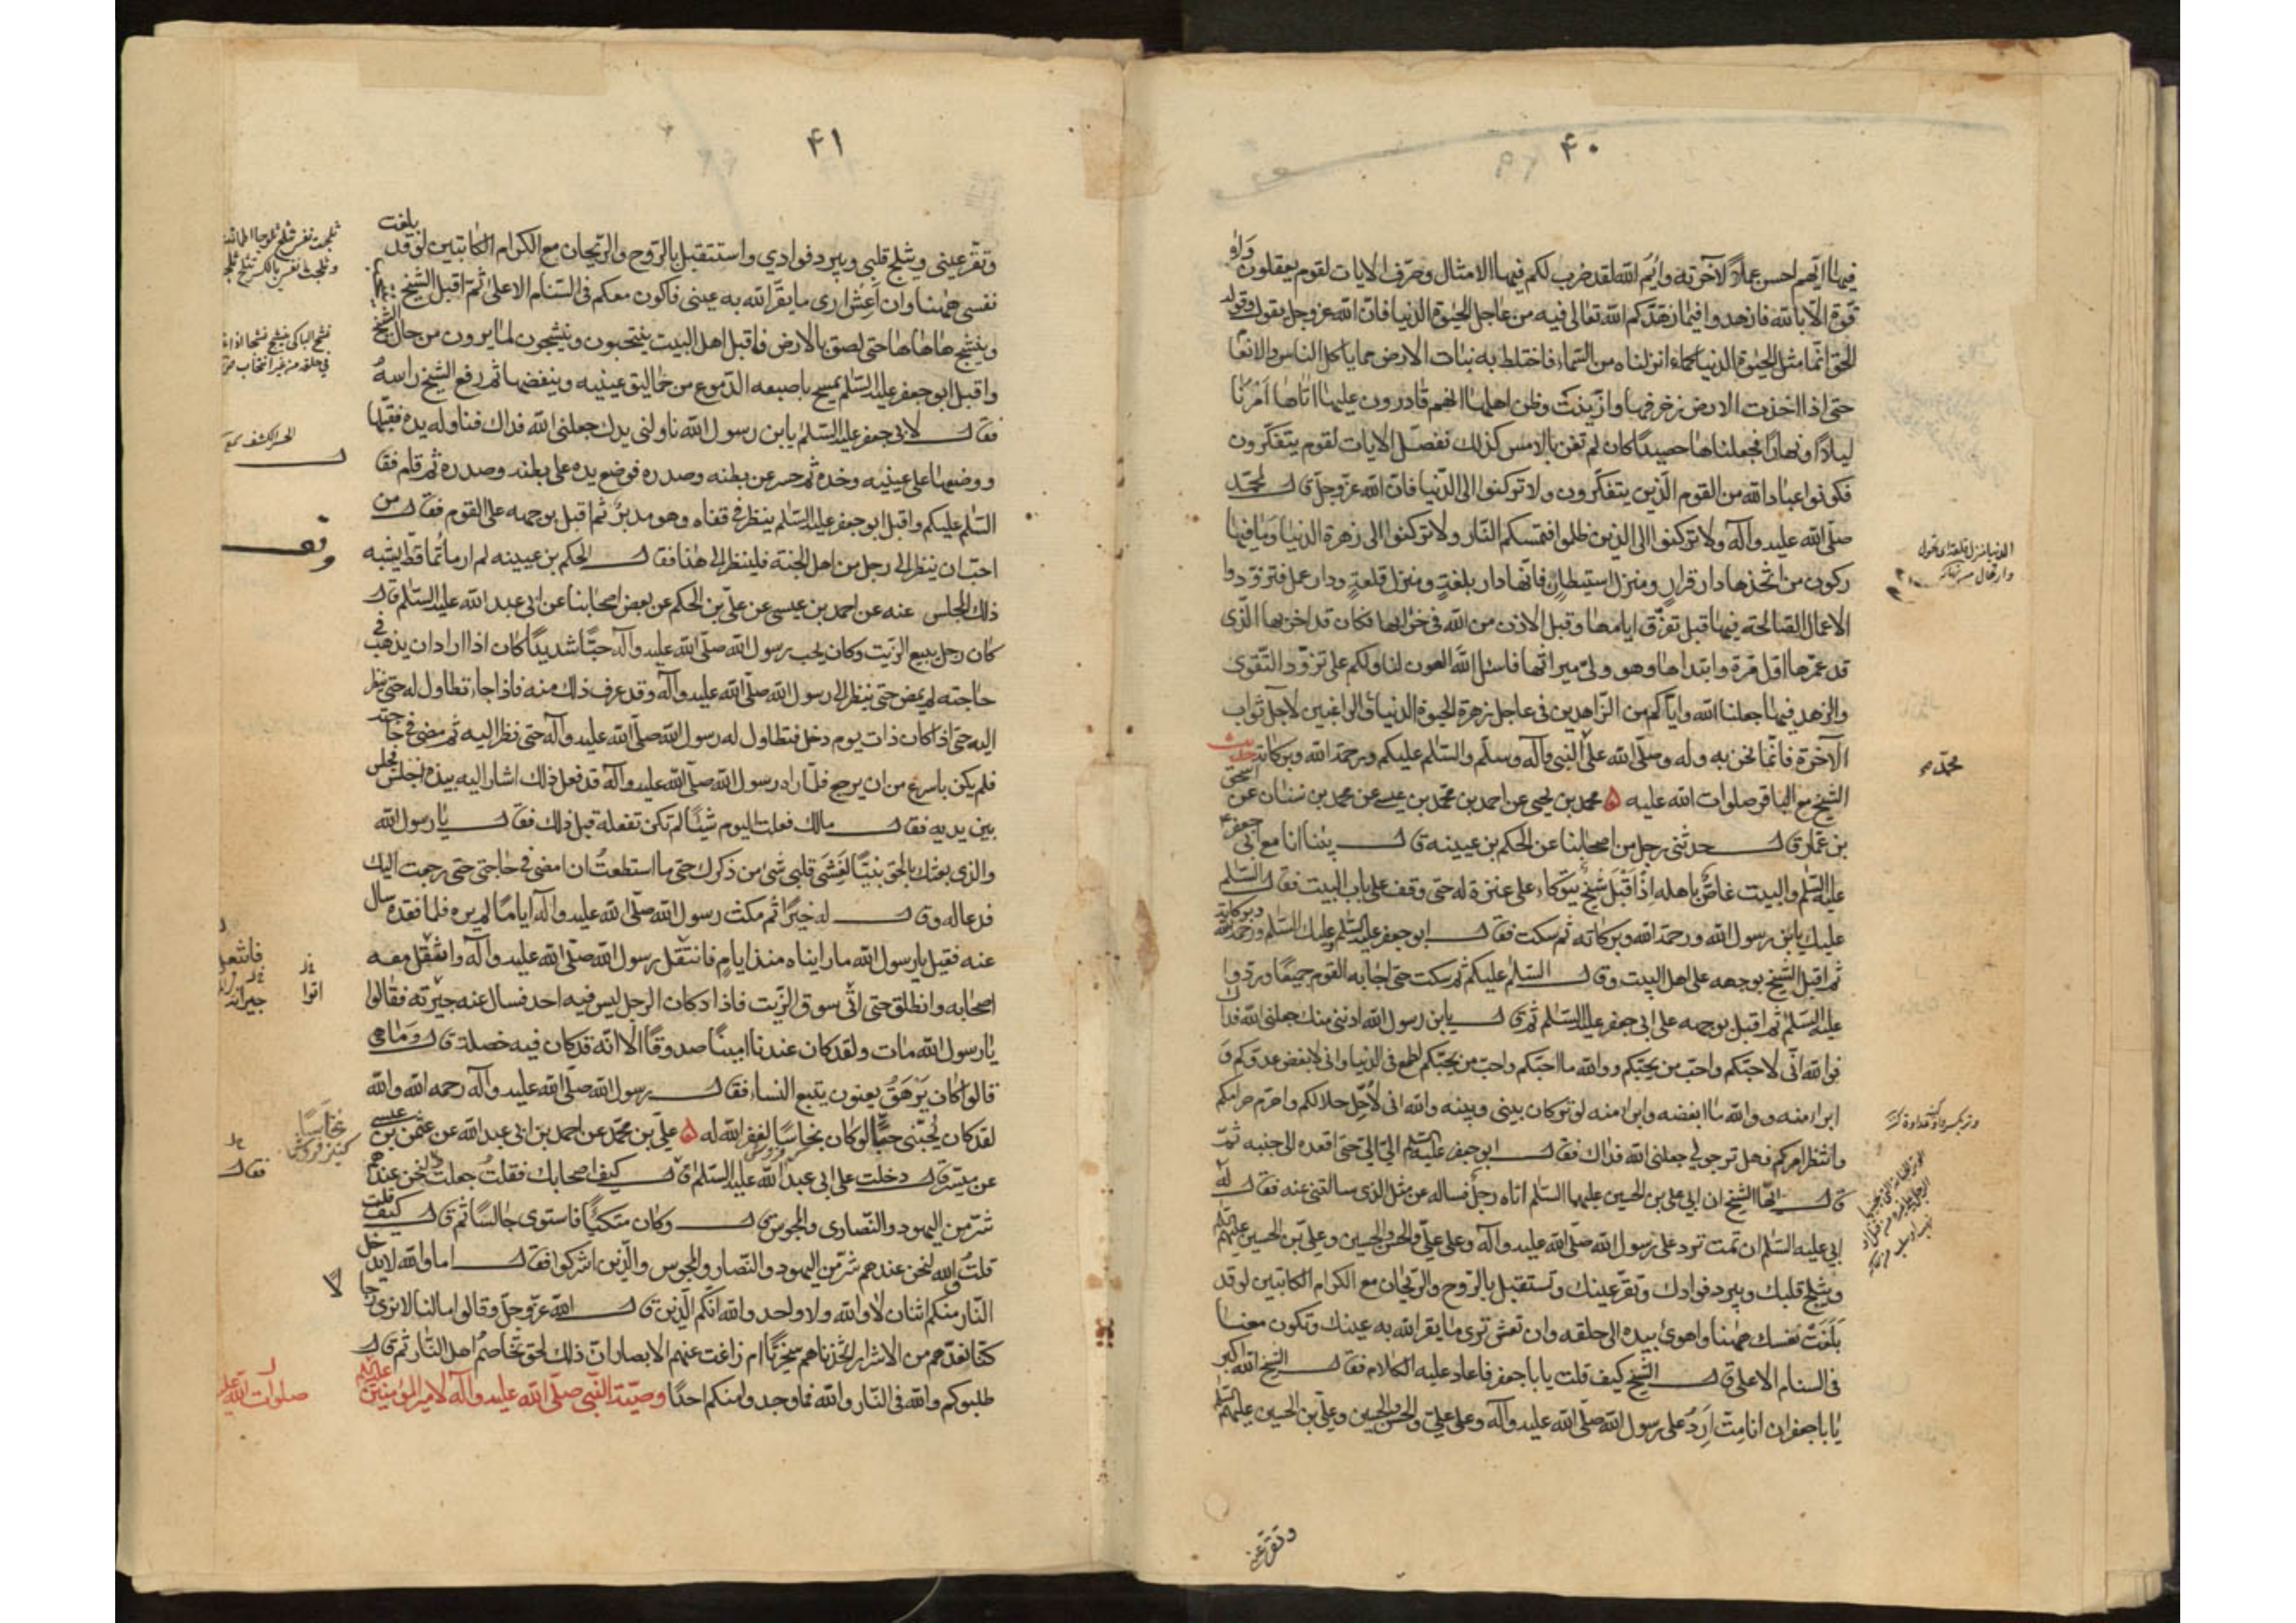 ۴۰
فيها ايهم احسن عملا لاخرته وايم الله لقد ضرب لكم فيها الامثال وصرف الايات لقوم يعقلون ولا
قوة الا بالله فازهدوا فيما زهدكم الله تعالى فيه من عاجل الحيوة الدنيا فان الله عز وجل يقول وقوله
الحق انما مثل الحيوة الدنيا كماء انزلناه من السماء فاختلط به نبات الارض مما ياكل الناس والانعا
حتى اذا اخذت الارض زخرفها وازينت وظن اهلها انهم قادرون عليها اتاها امرنا
ليلا او نهارا فجعلناها حصيدا كان لم تغن بالامس كذلك نفصل الايات لقوم يتفكرون
فكونوا عباد الله من القوم الذين يتفكرون ولا تركنوا الى الدنيا فان الله عز وجل قال لمحمد
صلى الله عليه وآله ولا تركنوا الى الذين ظلموا فتمسكم النار ولا تركنوا الى زهرة الدنيا وما فيها
ركون من اتخذها دار قرار ومنزل استيطان فانها دار بلغة ومنزل قلعة ودار عمل فتزودوا
الاعمال الصالحة فيها قبل تفرق ايامها وقبل الاذن من الله في خرابها فكان قد اخربها الذى
قد عمرها اول مرة وابتداها وهو ولى ميراثها فاسئل الله العون لنا ولكم على تزود التقوى
والزهد فيها جعلنا الله واياكم من الزاهدين في عاجل زهرة الحيوة الدنيا والراغبين لآجل ثواب
الآخرة فانما نحن به وله وصلى الله على النبي وآله وسلم والسلام عليكم ورحمة الله وبركاته حديث
محمد
الشيخ مع الباقر صلوات الله عليه ۵ محمد بن يحيى عن احمد بن محمد بن عيسى عن محمد بن سنان عن اسحق
بن عمار قال حدثنى رجل من اصحابنا عن الحكم بن عيينه قال بينا انا مع ابي جعفر
عليه السلم والبيت غاص باهله اذ اقبل شيخ يتوكاء على عنزة له حتى وقف على باب البيت فقال السلم
عليك يابن رسول الله ورحمة الله وبركاته ثم سكت فقال ابو جعفر عليه السلم وعليك السلم ورحمة الله وبركاته
ثم اقبل الشيخ بوجهه على اهل البيت وقال السلم عليكم ثم سكت حتى اجابه القوم جميعا وردوا
عليه السلم ثم اقبل بوجهه على ابي جعفر عليه السلم ثم قال يابن رسول الله ادننى منك جعلنى الله فداك
فوالله انى لاحبكم واحب من يحبكم ووالله ما احبكم واحب من يحبكم لطمع في الدنيا وانى لابغض عدوكم و
ابرا منه ووالله ما ابغضه وابرا منه لوتر كان بينى وبينه والله انى لاحل حلالكم واحرم حرامكم
وانتظر امركم فهل ترجو لي جعلنى الله فداك فقال ابو جعفر عليه السلم الي الي حتى اقعده الى جنبه ثم
قال ايها الشيخ ان ابي على بن الحسين عليهما السلم اتاه رجل فساله عن مثل الذى سالتنى عنه فقال له
ابي عليه السلم ان تمت ترد على رسول الله صلى الله عليه وآله وعلى علي والحسن والحسين وعلى بن الحسين عليهم السلم
ويثلج قلبك ويبرد فوادك وتقر عينك وتستقبل بالروح والريحان مع الكرام الكاتبين لو قد
بلغت نفسك ههنا واهوى بيده الى حلقه وان تعش ترى ما يقر الله به عينك وتكون معنا
في السنام الاعلى قال الشيخ كيف قلت يا با جعفر فاعاد عليه الكلام فقال الشيخ الله اكبر
يا با جعفر ان انا مت ارد على رسول الله صلى الله عليه وآله وعلى علي والحسن والحسين وعلى بن الحسين عليهم السلم
وتقر عينى
۴۱
وتقر عينى ويثلج قلبي ويبرد فوادي واستقبل بالروح والريحان مع الكرام الكاتبين لو قد بلغت
نفسى ههنا وان اعش ارى ما يقر الله به عينى فاكون معكم في السنام الاعلى ثم اقبل الشيخ
وينشج هاهاها حتى لصق بالارض فاقبل اهل البيت ينتحبون وينشجون لما يرون من حال الشيخ
واقبل ابو جعفر عليه السلم يمسح باصبعه الدموع من حماليق عينيه وينفضها ثم رفع الشيخ راسه
فقال لابي جعفر عليه السلم يابن رسول الله ناولنى يدك جعلنى الله فداك فناوله يده فقبلها
ووضعها على عينيه وخده ثم حسر عن بطنه وصدره فوضع يده على بطنه وصدره ثم قام فقا
السلم عليكم واقبل ابو جعفر عليه السلم ينظر في قفاه وهو مدبر ثم اقبل بوجهه على القوم فقال من
احب ان ينظر الى رجل من اهل الجنة فلينظر الى هذا فقال الحكم بن عيينه لم ار ماتما قط يشبه
ذلك المجلس عنه عن احمد بن عيسى عن على بن الحكم عن بعض اصحابنا عن ابي عبد الله عليه السلم قال
كان رجل يبيع الزيت وكان يحب رسول الله صلى الله عليه وآله حبا شديدا كان اذا اراد ان يذهب في
حاجته لم يمض حتى ينظر الى رسول الله صلى الله عليه وآله وقد عرف ذلك منه فاذا جاء تطاول له حتى ينظر
اليه حتى اذا كان ذات يوم دخل فتطاول له رسول الله صلى الله عليه وآله حتى نظر اليه ثم مضى في حاجته
فلم يكن باسرع من ان يرجع فلما راه رسول الله صلى الله عليه وآله قد فعل ذلك اشار اليه بيده اجلس فجلس
بين يديه فقال مالك فعلت اليوم شيئا لم تكن تفعله قبل ذلك فقال يا رسول الله
والذي بعثك بالحق نبيا لغشى قلبي شئ من ذكرك حتى ما استطعت ان امضى في حاجتى حتى رجعت اليك
فدعا له وقال له خيرا ثم مكث رسول الله صلى الله عليه وآله اياما لم يره فلما فقده سال
عنه فقيل يا رسول الله ما رايناه منذ ايام فانتقل رسول الله صلى الله عليه وآله وانتقل معه
اصحابه وانطلق حتى اتى سوق الزيت فاذا دكان الرجل ليس فيه احد فسال عنه جيرته فقالوا
يا رسول الله مات ولقد كان عندنا امينا صدوقا الا انه قد كان فيه خصلة قال وما هى
قالوا كان يرهق يعنون يتبع النساء فقال رسول الله صلى الله عليه وآله رحمه الله والله
لقد كان يحبنى حبا لو كان نخاسا لغفر الله له ۵ على بن محمد عن احمد بن ابي عبد الله عن عثمن بن عيسى
نخاسا
كنيز فروش
عن ميسر قال دخلت على ابي عبد الله عليه السلم فقال كيف اصحابك فقلت جعلت فداك لنحن عندهم
شر من اليهود والنصارى والمجوس قال وكان متكئا فاستوى جالسا ثم قال كيف قلت
قلت والله لنحن عندهم شر من اليهود والنصارى والمجوس والذين اشركوا فقال اما والله لا يدخل
النار منكم اثنان لا والله ولا واحد والله انكم الذين قال الله عز وجل وقالوا ما لنا لا نرى رجا
لا
كنا نعدهم من الاشرار اتخذناهم سخريا ام زاغت عنهم الابصار ان ذلك لحق تخاصم اهل النار ثم قال
طلبوكم والله في النار والله فما وجدوا منكم احدا وصية النبي صلى الله عليه وآله لامير المؤمنين عليه السلم
صلوات الله عليه